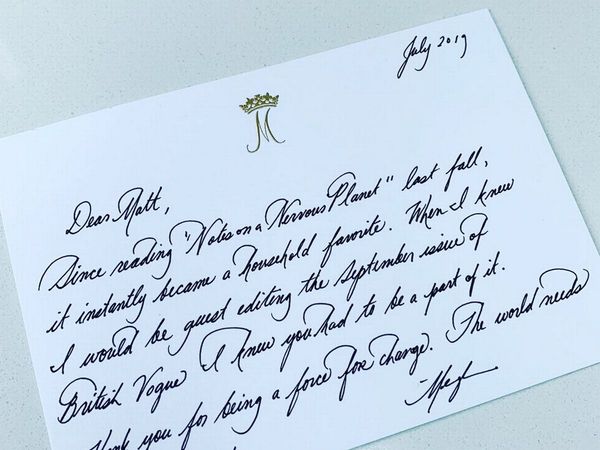 July 2019
M
Dear Matt,
Since reading "Notes on a Nervous Planet" last fall,
it instantly became a household favorite. When I knew
I would be guest editing the September issue of
British Vogue I knew you had to be a part of it.
Thank you for being a force for change. The world needs